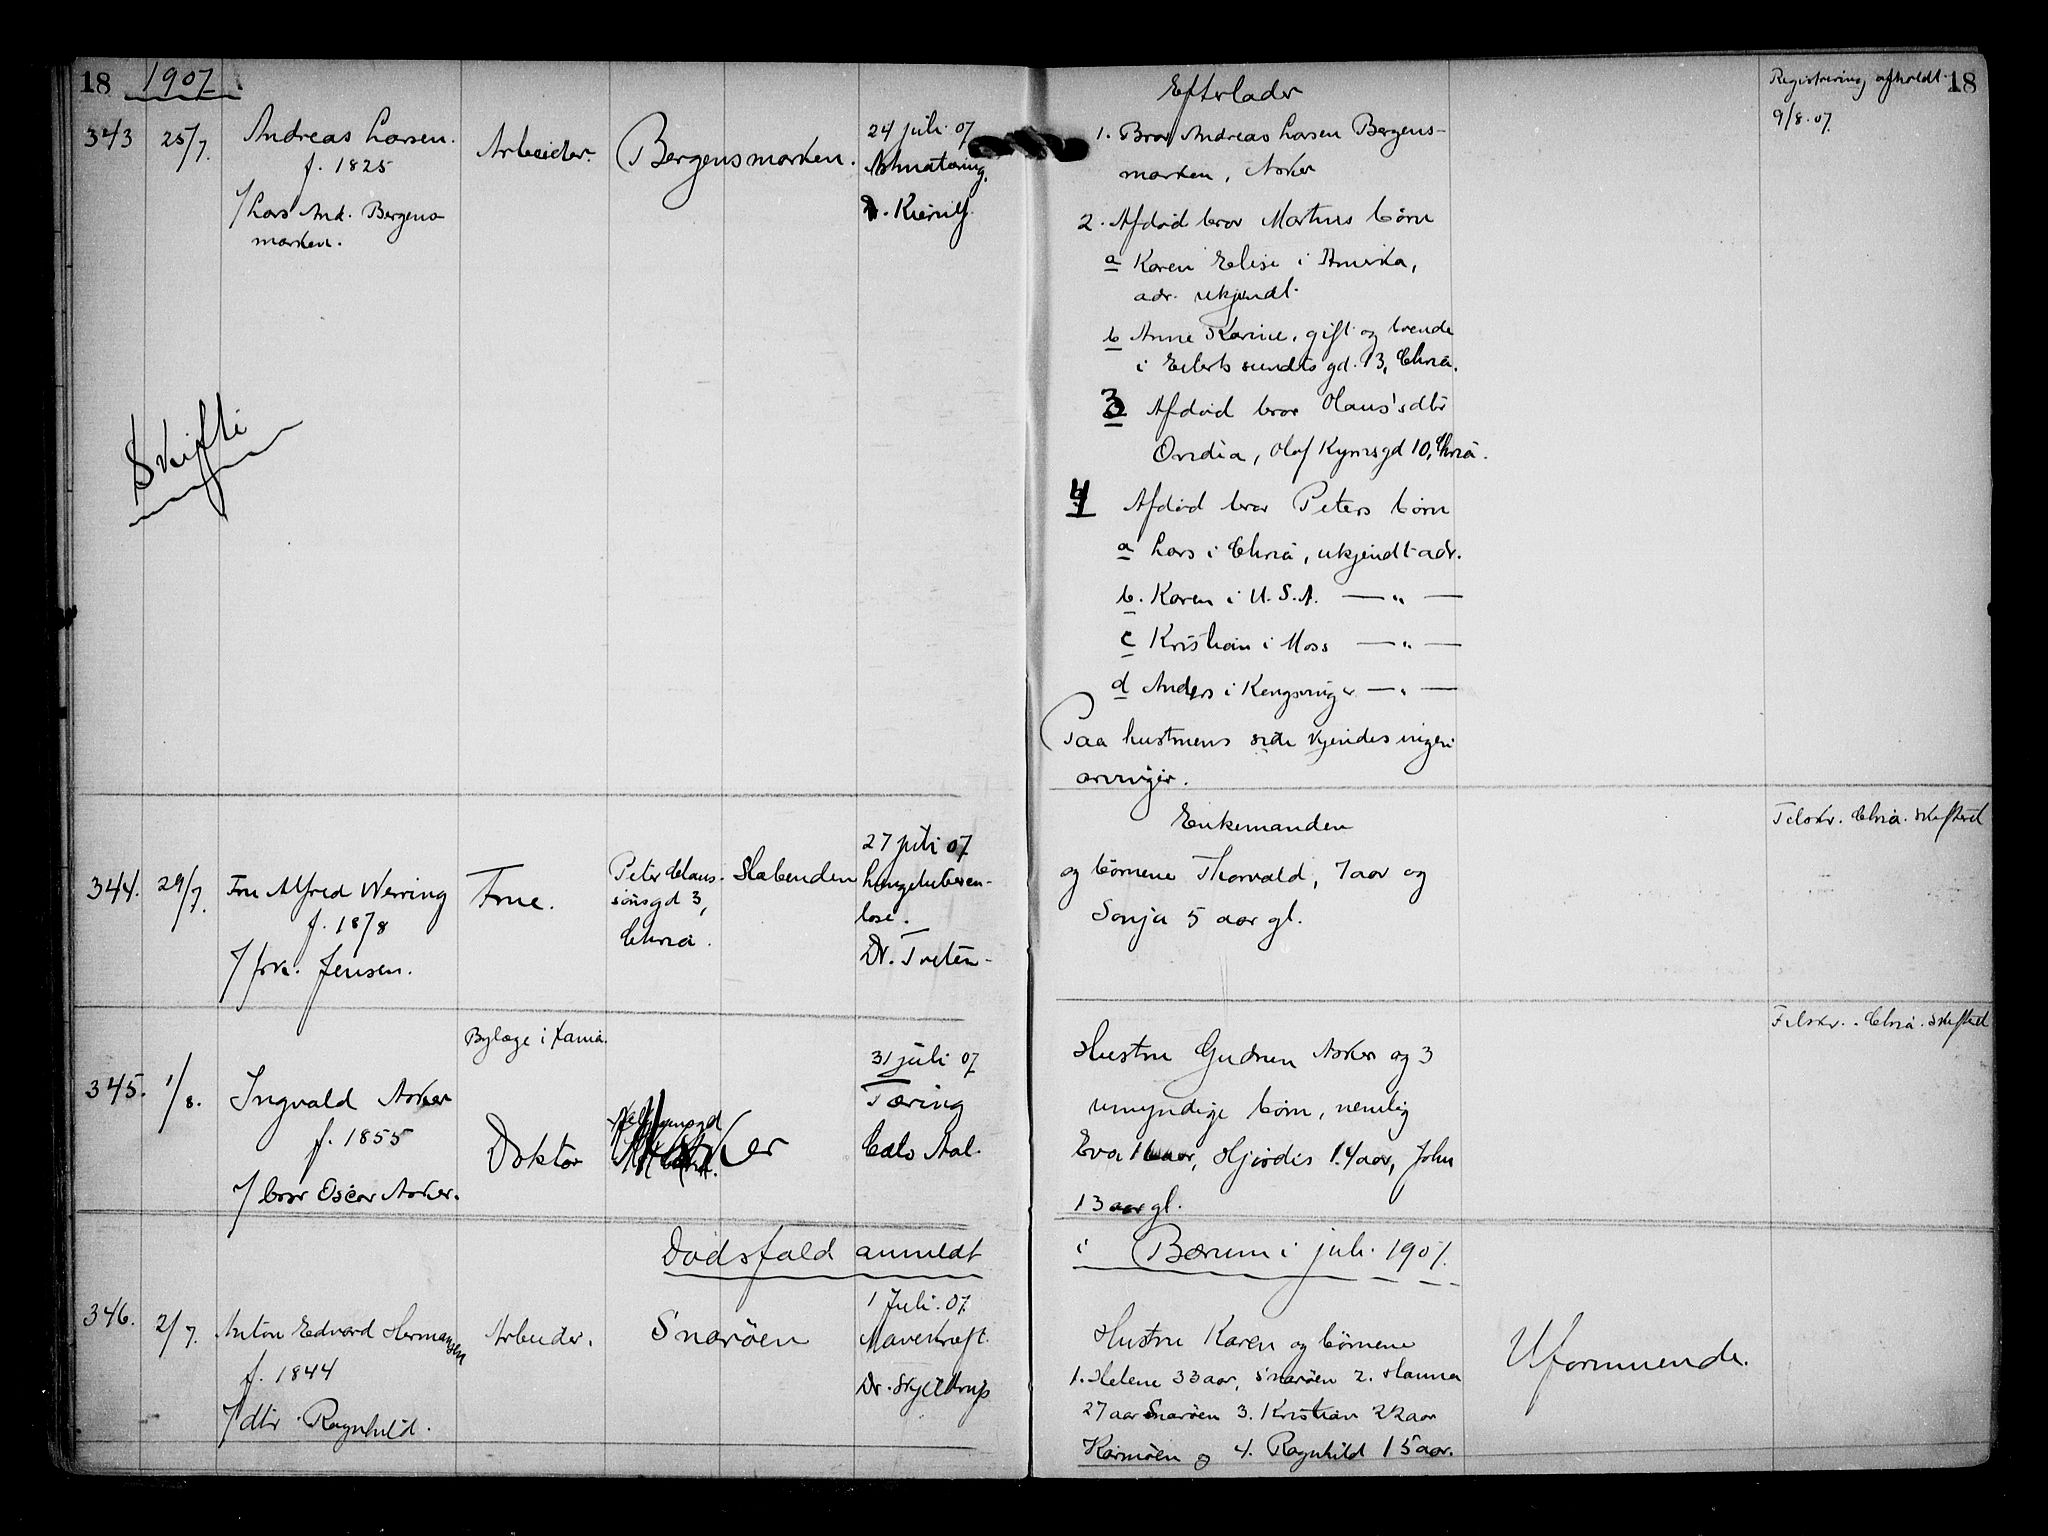 18 1907
343 25/7. Andreas Larsen. Arbeider. Bergensmarken. 24 juli 07
f. 1825
/ Lars And. Bergens- Dr. Kierulf.
marken.
Skifte
344. 29/7. Fru Alfred Werring Frue. Peter Claus- Slabenden 27 juli 07
f. 1878 sönsgd 3, Lungetuberku-
/ frk. Jensen. Chria. lose.
Dr. Treten
Bylæge i
345. 1/8. Ingvald Asker Doktor Asker 31 juli 07
f. 1855 Tæring
/ bror Oscar Asker. Cato Aal.
Dødsfald anmeldt
346. 2/7. Anton Edvard Hermansen Arbeider. Snarøen 1 Juli. 07
f. 1844 Mavekræft.
/ dtr. Ragnhild. Dr. Skjeldrup
Efterlader
Registrering afholdt 18
9/8.07
1. Bror Andreas Larsen Bergens-
marken, Asker
2. Afdød bror Martins börn
a Karen Elise i Amerika,
adr. ukjendt.
b Anne Karine, gift og boende
i Eilert sundts gd. 13, Chria.
3 Afdød bror Olaus's dtr
Ovidia, Olaf Kyrresgd 10, Chria.
4 Afdød bror Peters börn
a Lars i Chria, ukjendt adr.
b. Karen i U.S.A. — " —
c Kristian i Moss — " —
d Anders i Kongsvinger — " —
Paa hustruens side kjendes ingen
arvinger.
Enkemanden
og börnene Thorvald, 7 aar og
Sonja 5 aar gl.
Tilskr. Chria. skifteret
Hustru Gudrun Asker og 3
umyndige börn, nemlig
Eva 16 aar, Hjørdis 14 aar, John
13 aar gl.
Tilskr. Chria. skifteret
i Bærum i juli 1907.
Hustru Karen og börnene
1. Helene 33 aar, Snarøen 2. Hanna
27 aar Snarøen 3. Kristian 22 aar
Karmøen og 4. Ragnhild 15 aar.
Uformuende.